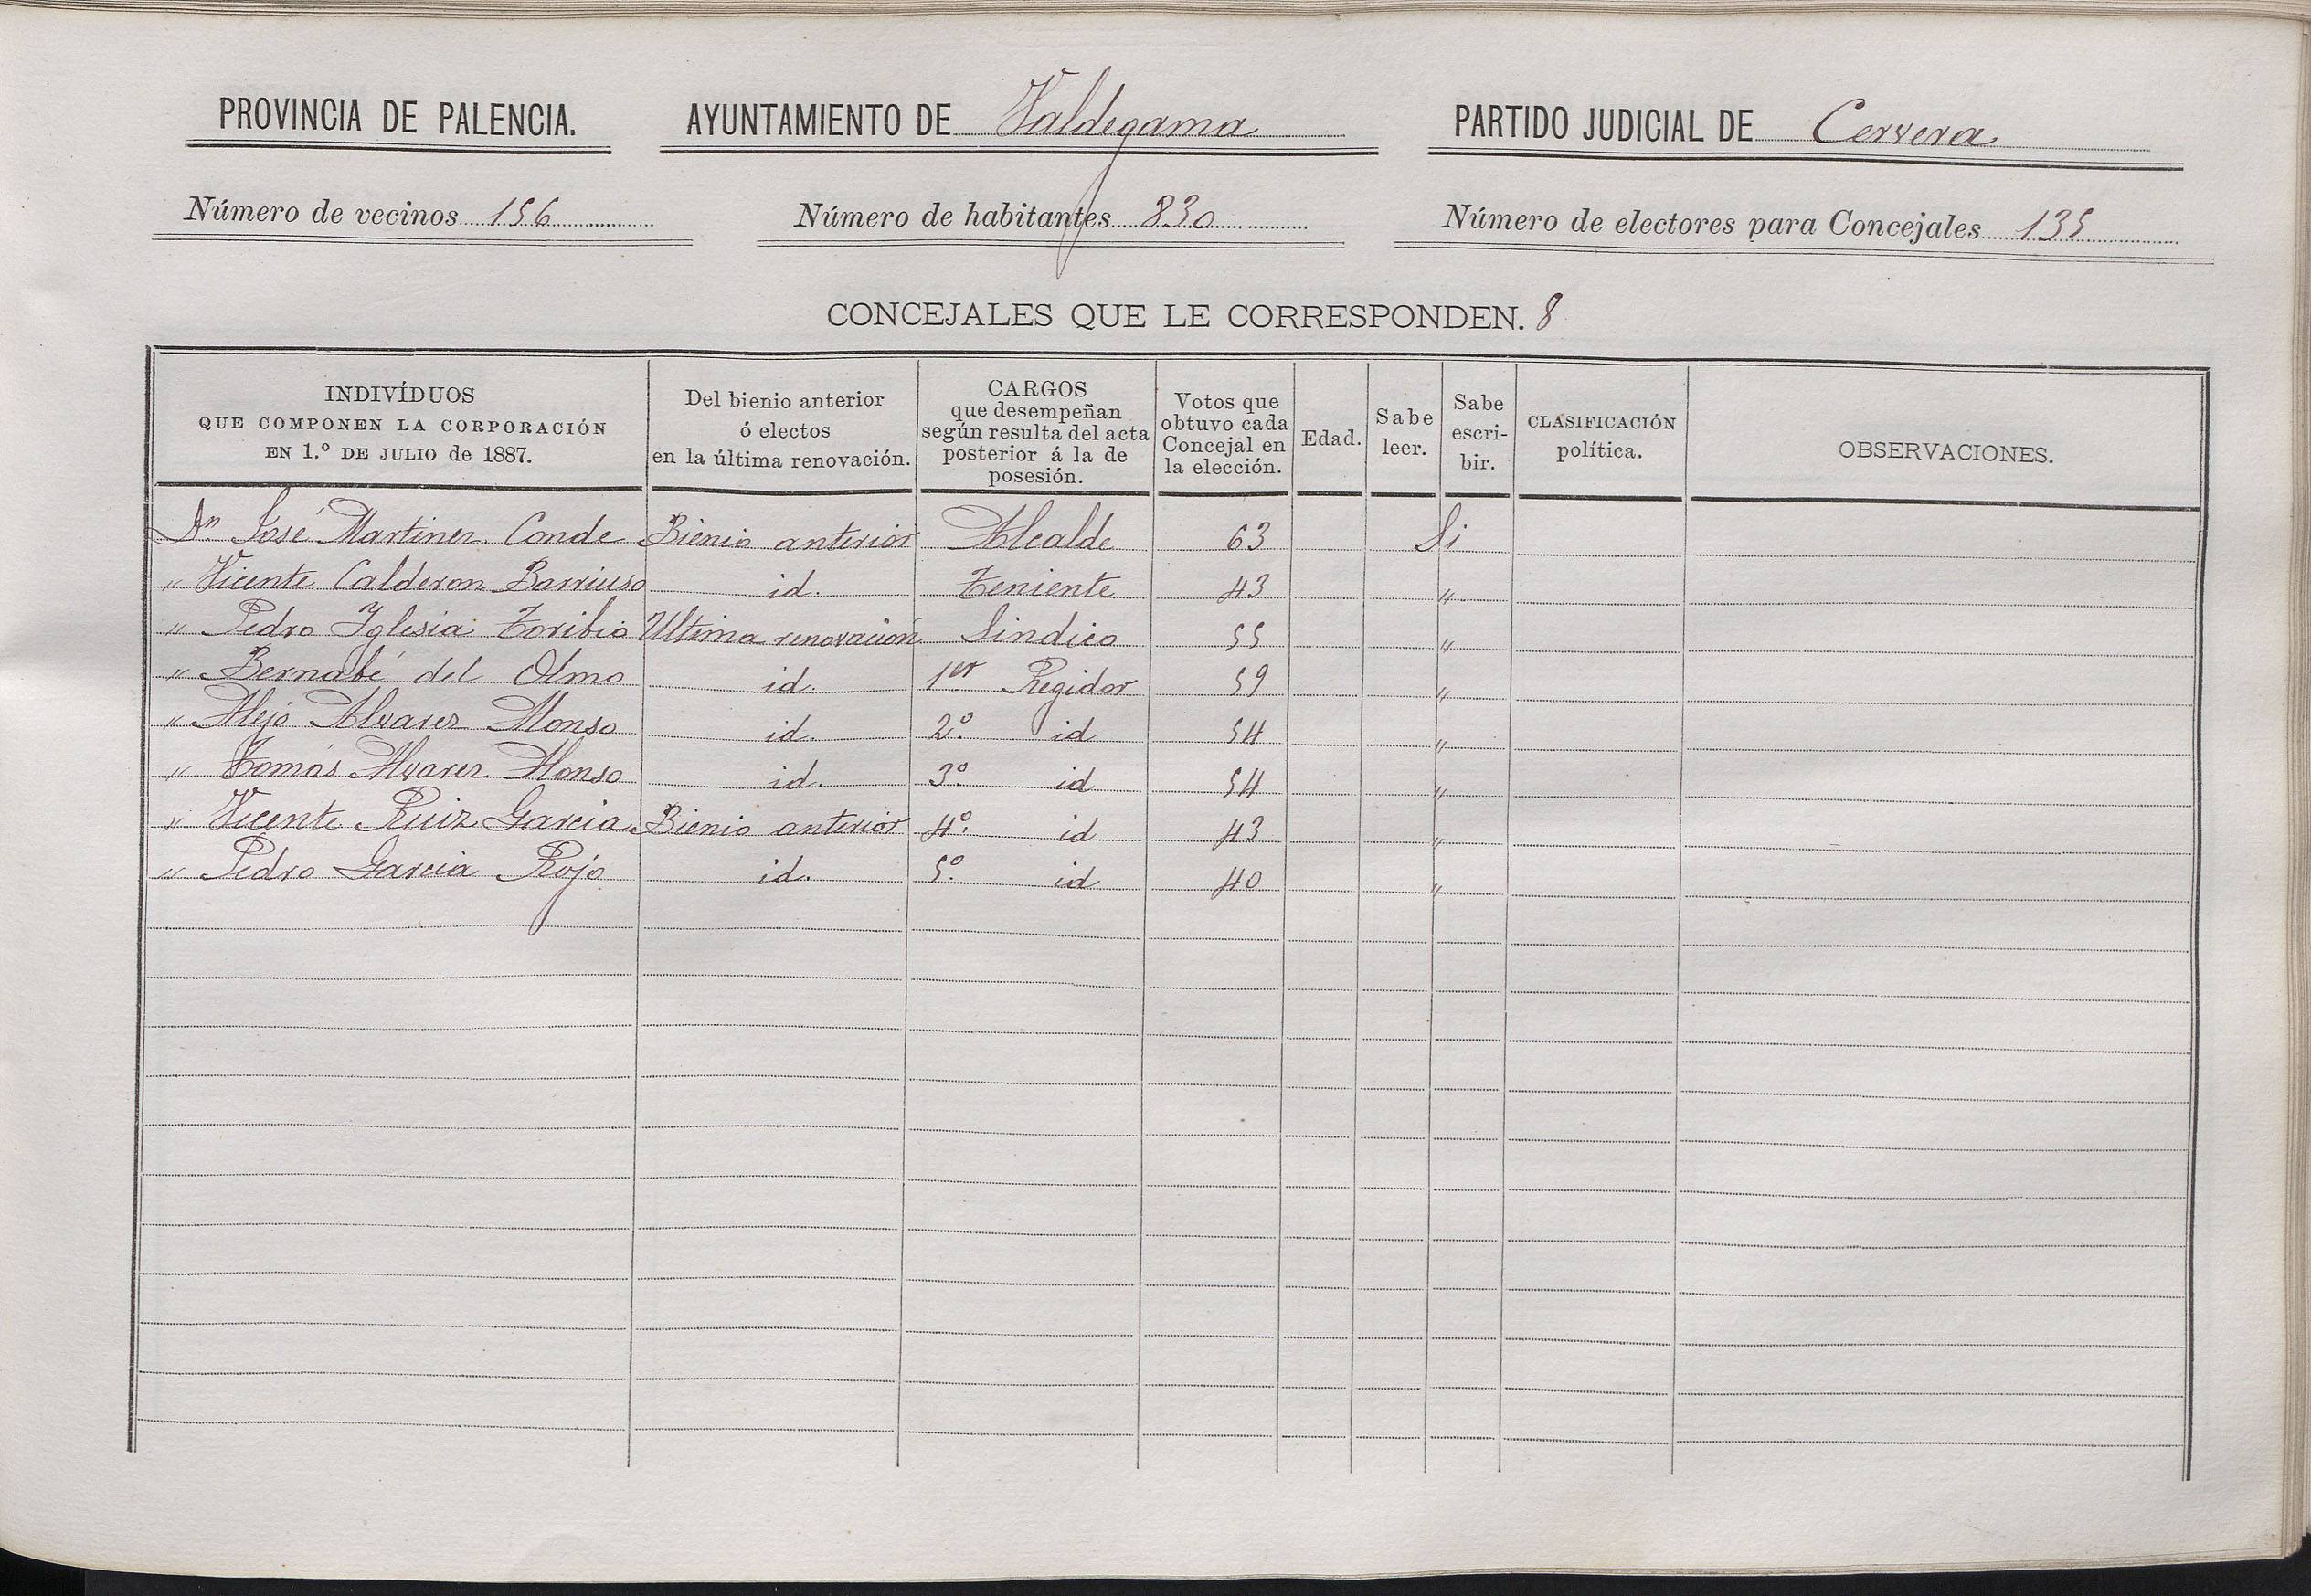 PROVINCIA DE PALENCIA. AYUNTAMIENTO DE Valdegama PARTIDO JUDICIAL DE Cervera
Número de vecinos 156 Número de habitantes 830 Número de electores para Concejales 135
CONCEJALES QUE LE CORRESPONDEN. 8
INDIVÍDUOS
QUE COMPONEN LA CORPORACIÓN
EN 1.º DE JULIO de 1887.
Del bienio anterior
ó electos
en la última renovación.
CARGOS
que desempeñan
según resulta del acta
posterior á la de
posesión.
Votos que
obtuvo cada
Concejal en
la elección.
Edad.
Sabe
leer.
Sabe
escri-
bir.
CLASIFICACIÓN
política.
OBSERVACIONES.
Dn José Martinez Conde Bienio anterior Alcalde 63 Si
" Vicente Calderon Barriuso id. Teniente 43 "
" Pedro Yglesia Toribio Ultima renovación Sindico 55 "
" Bernabé del Olmo id. 1er Regidor 59 "
" Alejo Alvarez Alonso id. 2º. id 54 "
" Tomás Alvarez Alonso id. 3º. id 54 "
" Vicente Ruiz Garcia Bienio anterior 4º. id 43 "
" Pedro Garcia Rojo id. 5º. id 40 "